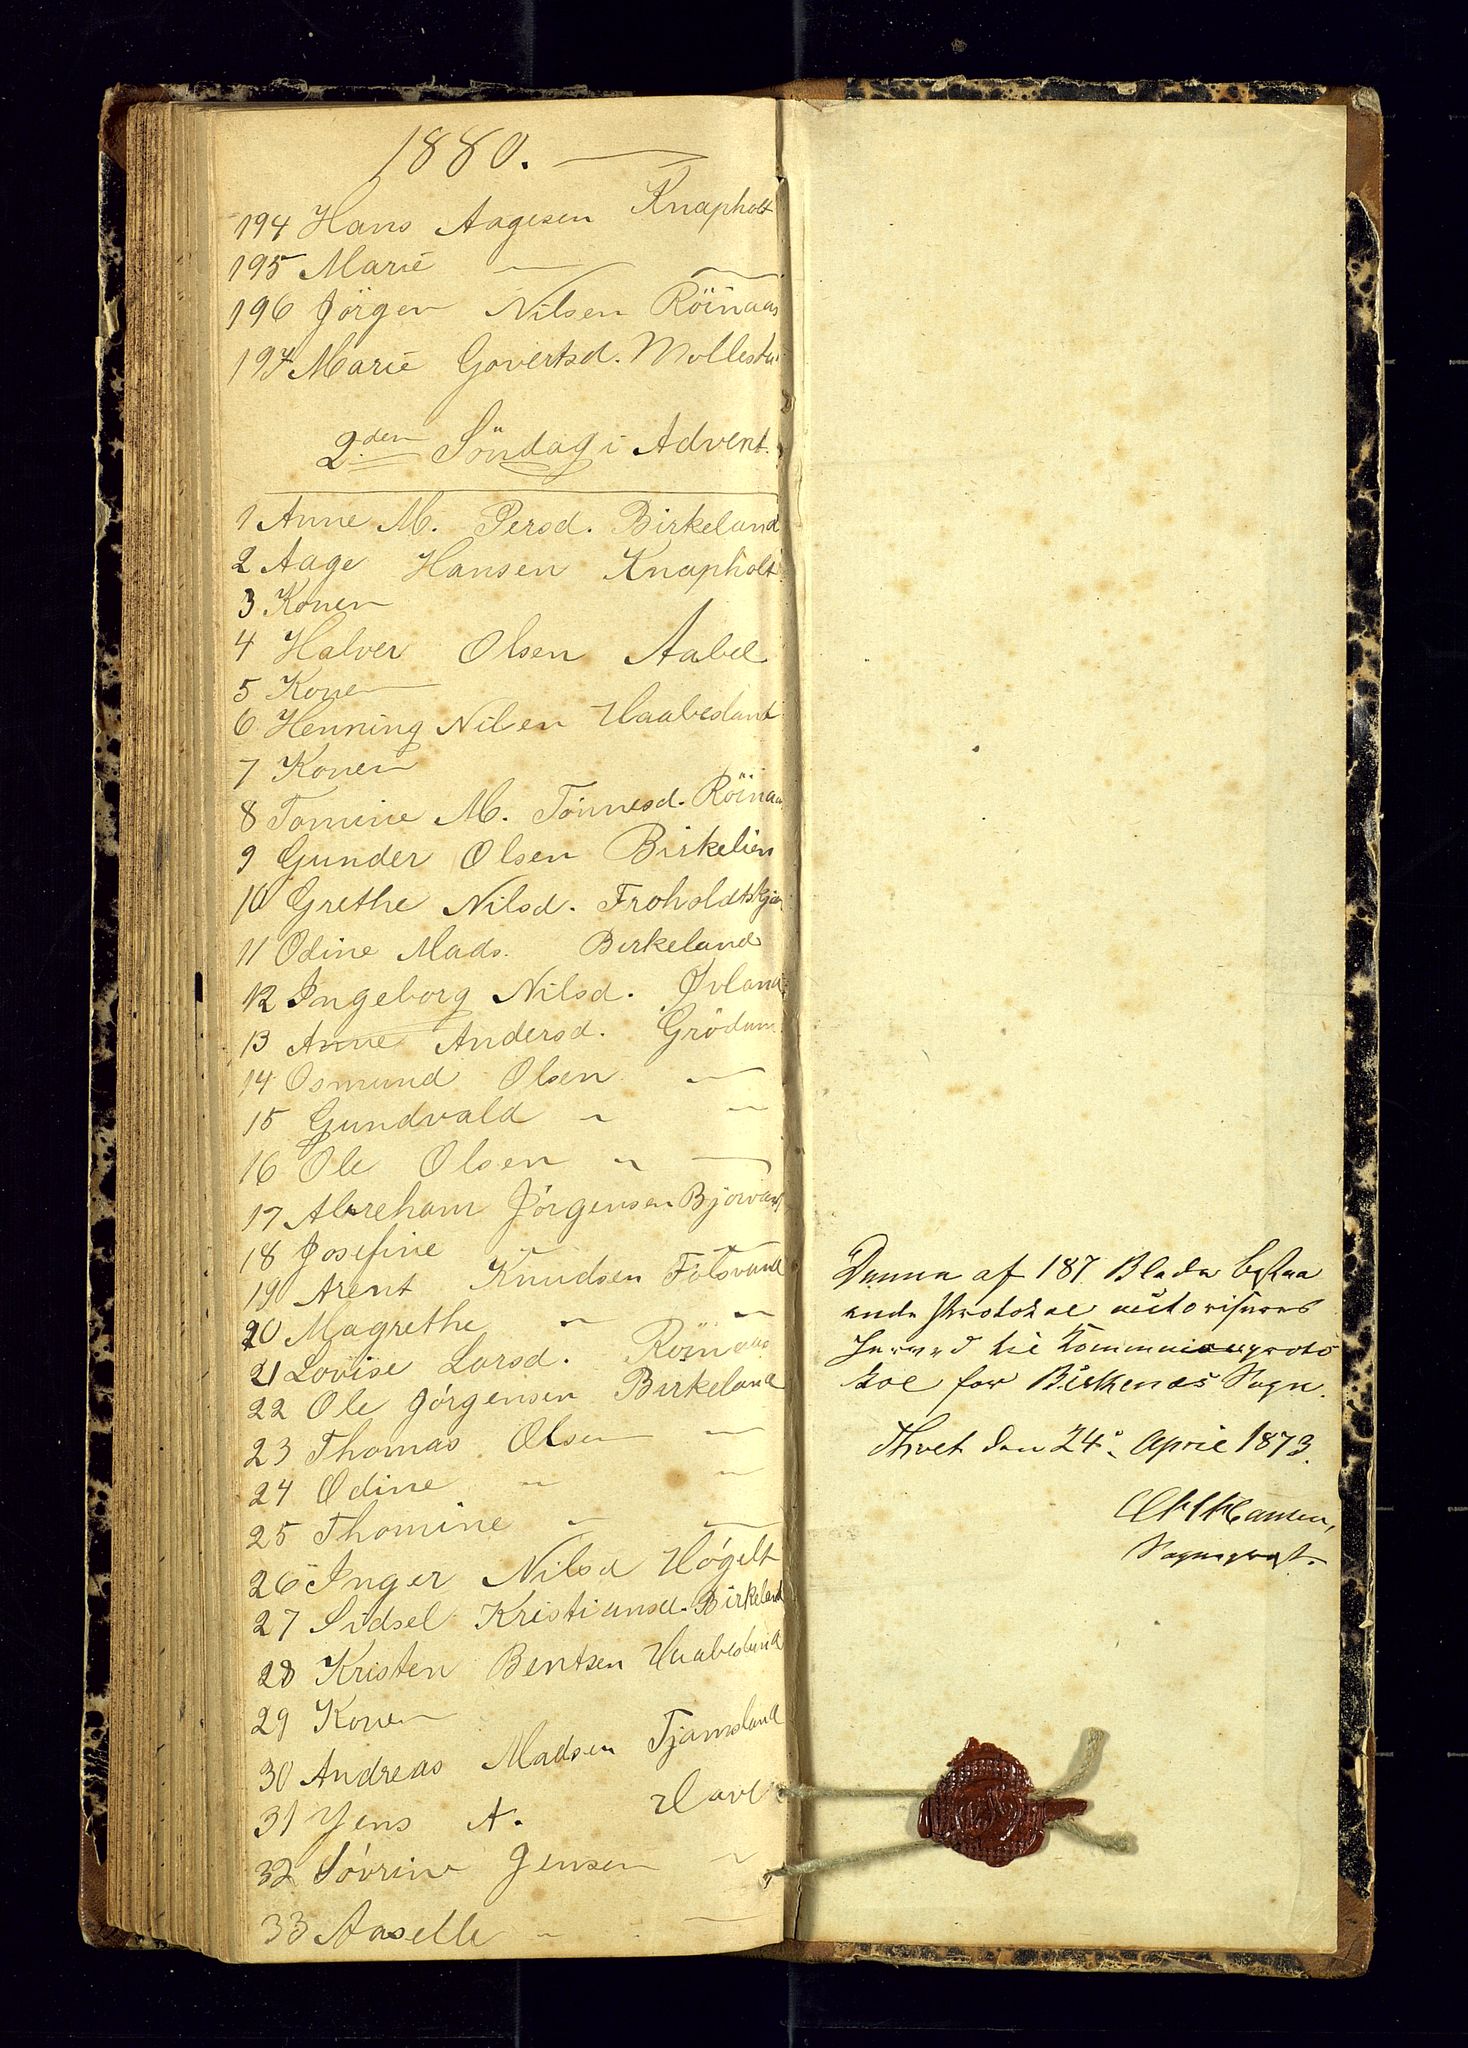 1880. —
194 Hans Aagesen Knapholt
195 Marie — —
196 Jörgen Nilsen Röinaas
197 Marie Govertsd. Mollesta
2.den Söndag i Advent.
1 Anne M. Persd. Birkeland
2 Aage Hansen Knapholt
3 Konen
4 Halver Olsen Aabel
5 Konen
6 Henning Nilsen Haabesland
7 Konen
8 Tomine M. Tönnesd. Röinaa
9 Gunder Olsen Birkelien
10 Grethe Nilsd. Froholdtskjær
11 Odine Mads. Birkeland
12 Ingeborg Nilsd. Øvland
13 Anne Andersd. Grödum
14 Osmund Olsen —
15 Gundvald " "
16 Ole Olsen " —
17 Abreham Jörgensen Bjorvat
18 Josefine — —
19 Arent Knudsen Folsvand
20 Magrethe " "
21 Lovise Larsd. Röinaas
22 Ole Jörgensen Birkeland
23 Thomas Olsen —
24 Odine " "
25 Thomine " —
26 Inger Nilsd Högelt
27 Sidsel Kristiansd. Birkeland
28 Kristen Bentsen Haabesland
29 Konen
30 Andreas Madsen Tjamsland
31 Yens A. Have
32 Sövrine Jensen "
33 Aaselle " —
Denne af 187 Blade bestaa
ende Protokol autoriseres
herved til Kommunionproto
kol for Birkenæs Sogn.
Thvet den 24.de April 1873.
Hansen,
Sognepræst.